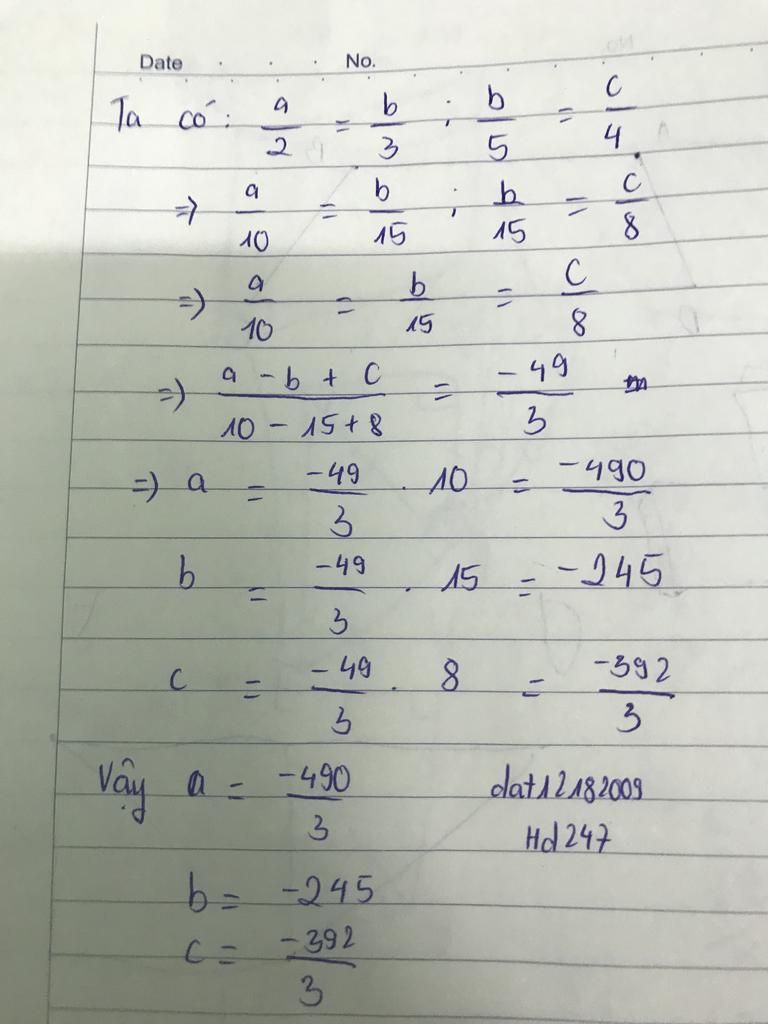 Date No.
Ta có: a/2 = b/3 ; b/5 = c/4
=> a/10 = b/15 ; b/15 = c/8
=> a/10 = b/15 = c/8
=> (a - b + c)/(10 - 15 + 8) = -49/3
=> a = -49/3 . 10 = -490/3
b = -49/3 . 15 = -245
c = -49/3 . 8 = -392/3
Vậy a = -490/3 dat12182009
Hd247
b = -245
c = -392/3